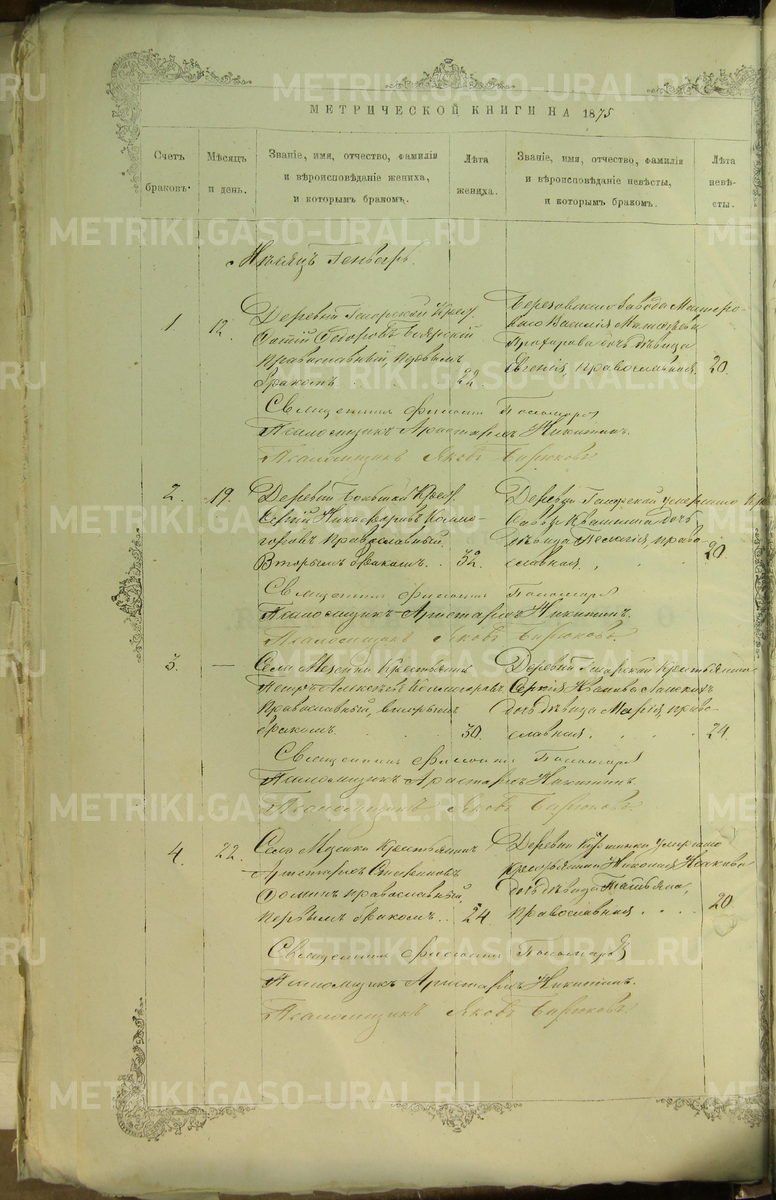 МЕТРИЧЕСКОЙ КНИГИ НА 1875
Счетъ браковъ.
Мѣсяцъ и день.
Званіе, имя, отчество, фамилія и вѣроисповѣданіе жениха, и которымъ бракомъ.
Лѣта жениха.
Званіе, имя, отчество, фамилія и вѣроисповѣданіе невѣсты, и которымъ бракомъ.
Лѣта невѣсты.
Мѣсяцъ Генварь.
1
12.
Деревни Гагарской Крест.
Ѳедоровъ
Православный, первымъ
бракомъ.
22.
Березовскаго Завода Мастеро-
ваго Василія
дочь дѣвица
Евгенія, православная
20.
Священникъ Филиппъ Пономаревъ
Псаломщикъ Аристархъ Никитинъ.
Псаломщикъ Яковъ Бирюковъ
2.
19.
Деревни Крест.
Сергій Никифоровъ Колмо-
горовъ Православный,
Вторымъ бракомъ.
32.
Деревни Гагарской умершаго
Саввы Квашнина дочь
дѣвица Пелагія, право-
славная.
20
Священникъ Филиппъ Пономаревъ
Псаломщикъ Аристархъ Никитинъ.
Псаломщикъ Яковъ Бирюковъ
3.
—
Села Мезенки Крестьянинъ
Петръ Алексѣевъ Колмогоровъ,
Православный, вторымъ
бракомъ.
30.
Деревни Гагарской Крестьянина
Сергія
дочь дѣвица Марія, право-
славная.
24.
Священникъ Филиппъ Пономаревъ
Псаломщикъ Аристархъ Никитинъ.
Псаломщикъ Яковъ Бирюковъ
4.
22.
Села Мезенки Крестьянинъ
Аристархъ
православный,
первымъ бракомъ.
24.
Деревни умершаго
Крестьянина Николая Исакова
дочь дѣвица Татьяна,
православная.
20.
Священникъ Филиппъ Пономаревъ
Псаломщикъ Аристархъ Никитинъ.
Псаломщикъ Яковъ Бирюковъ
METRIKI.GASO-URAL.RU